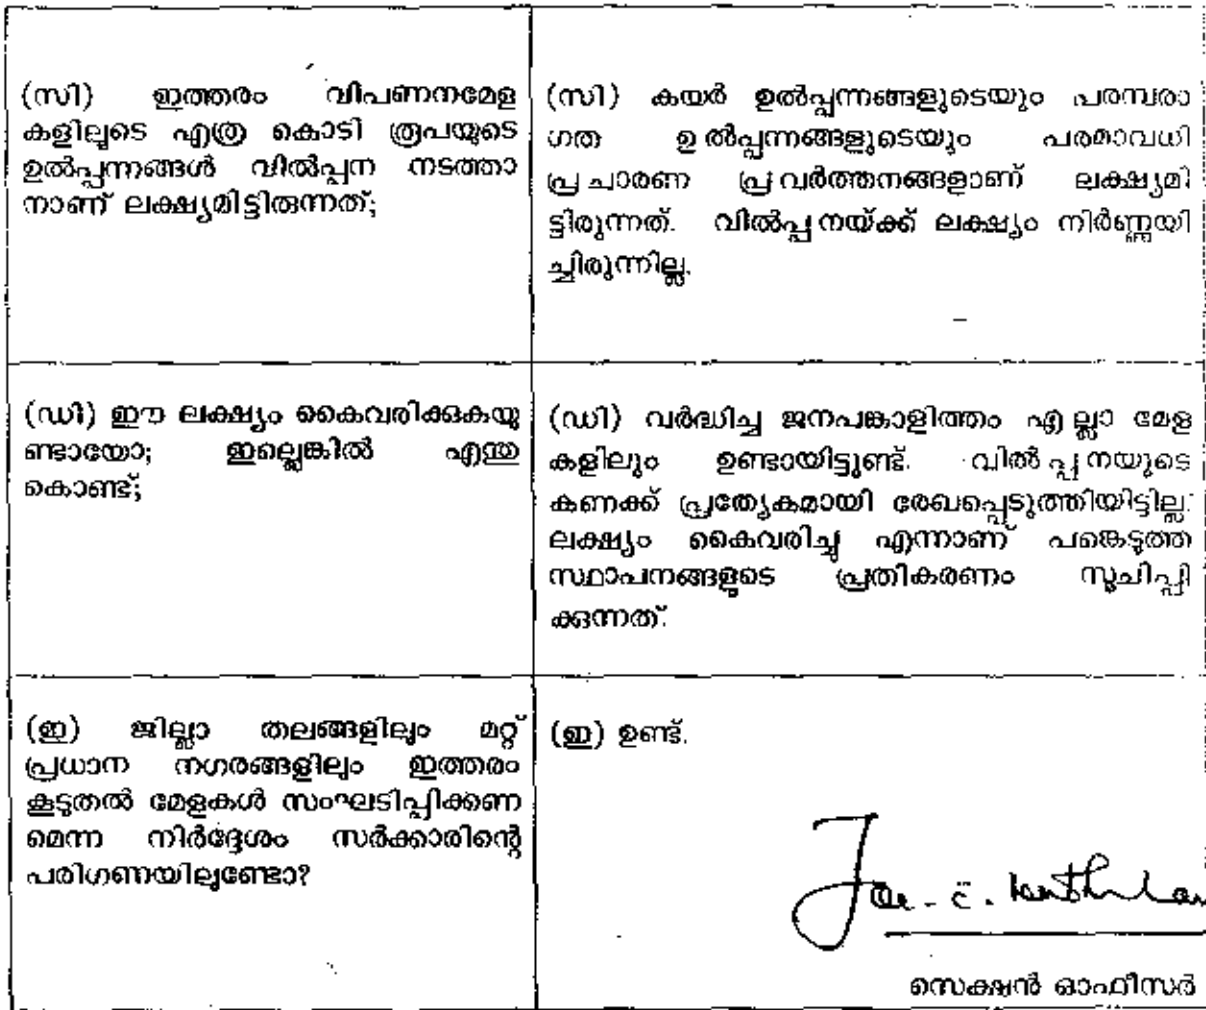 (സി) ഇത്തരം വിപണനമേള
കളിലൂടെ എത്ര കൊടി രൂപയുടെ
ഉൽപ്പന്നങ്ങൾ വിൽപ്പന നടത്താ
നാണ് ലക്ഷ്യമിട്ടിരുന്നത്;
(സി) കയർ ഉൽപ്പന്നങ്ങളുടെയും പരമ്പരാ
ഗത ഉൽപ്പന്നങ്ങളുടെയും പരമാവധി
പ്രചാരണ പ്രവർത്തനങ്ങളാണ് ലക്ഷ്യമി
ട്ടിരുന്നത്. വിൽപ്പനയ്ക്ക് ലക്ഷ്യം നിർണ്ണയി
ച്ചിരുന്നില്ല.
(ഡി) ഈ ലക്ഷ്യം കൈവരിക്കുകയു
ണ്ടായോ; ഇല്ലെങ്കിൽ എന്തു
കൊണ്ട്;
(ഡി) വർദ്ധിച്ച ജനപങ്കാളിത്തം എല്ലാ മേള
കളിലും ഉണ്ടായിട്ടുണ്ട്. വിൽപ്പനയുടെ
കണക്ക് പ്രത്യേകമായി രേഖപ്പെടുത്തിയിട്ടില്ല.
ലക്ഷ്യം കൈവരിച്ചു എന്നാണ് പങ്കെടുത്ത
സ്ഥാപനങ്ങളുടെ പ്രതികരണം സൂചിപ്പി
ക്കുന്നത്.
(ഇ) ജില്ലാ തലങ്ങളിലും മറ്റ്
പ്രധാന നഗരങ്ങളിലും ഇത്തരം
കൂടുതൽ മേളകൾ സംഘടിപ്പിക്കണ
മെന്ന നിർദ്ദേശം സർക്കാരിന്റെ
പരിഗണയിലുണ്ടോ?
(ഇ) ഉണ്ട്.
സെക്ഷൻ ഓഫീസർ